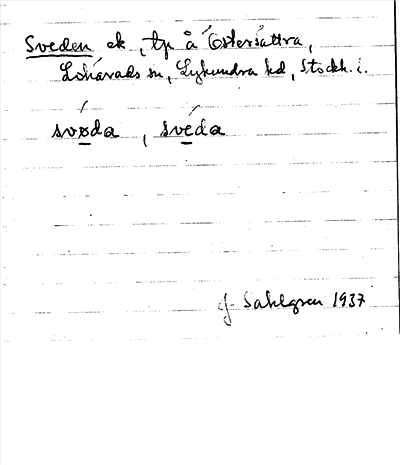 Sveden ek, tp å Östersättra,
Lohärads sn, Lyhundra hd, Stockh. l.
svøda, sveda
J. Sahlgren 1937